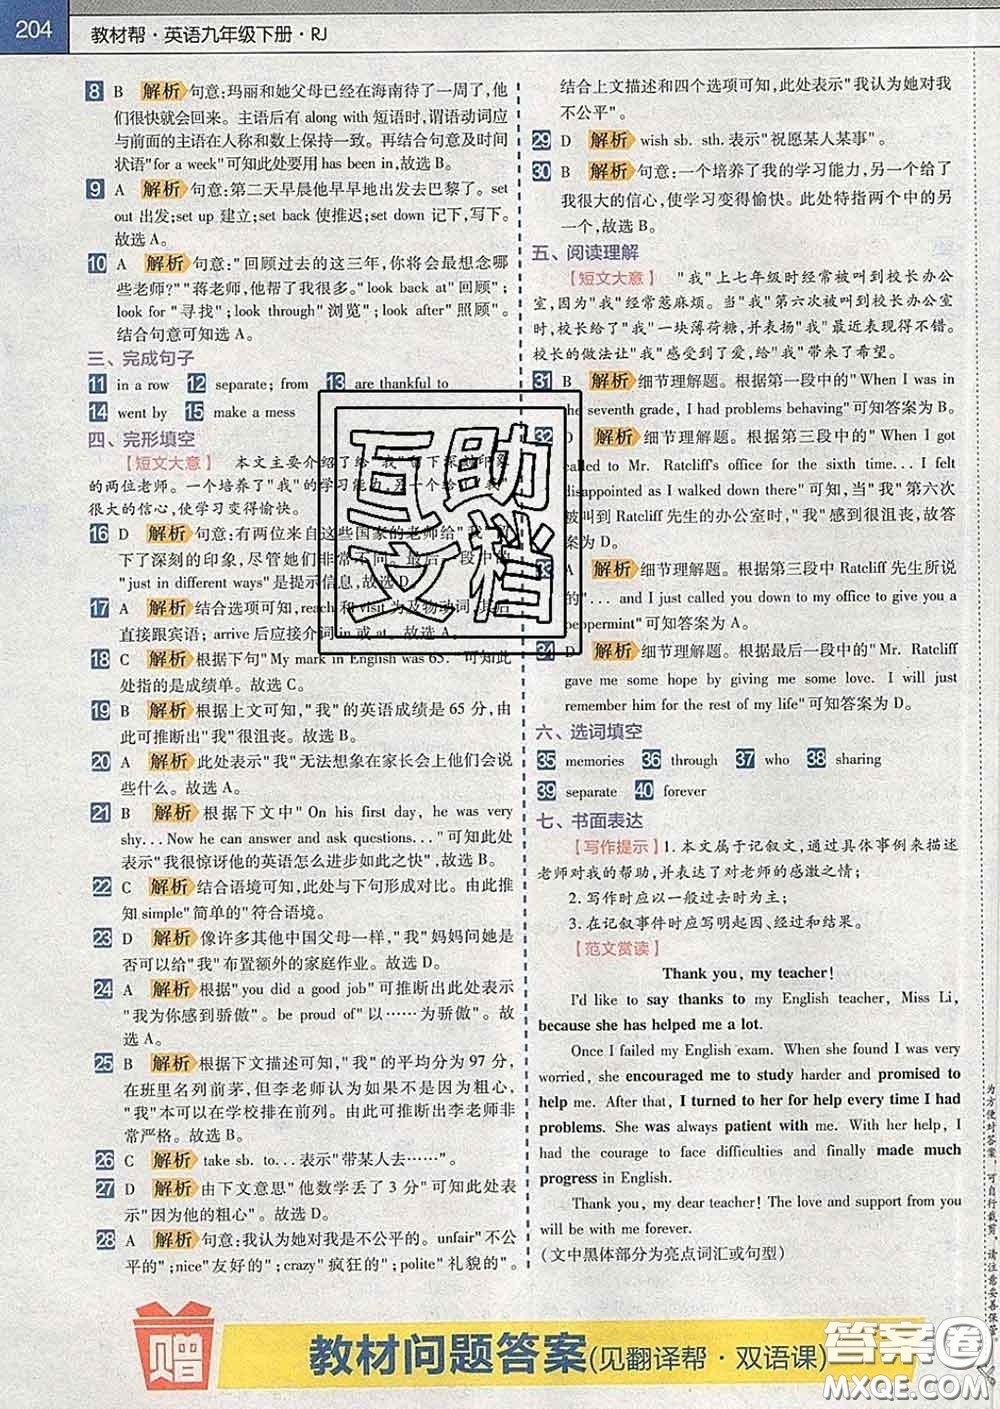 204
教材帮·英语九年级下册·RJ
8 B 解析 句意:玛丽和她父母已经在海南待了一周了,他
们很快就会回来。主语后有 along with 短语时,谓语动词应
与前面的主语在人称和数上保持一致。再结合句意及时间
状语"for a week"可知此处要用 has been in,故选 B。
9 A 解析 句意:第二天早晨他早早地出发去巴黎了。set
out 出发;set up 建立;set back 使推迟;set down 记下,写下。
故选 A。
10 A 解析 句意:"回顾过去的这三年,你将会最想念哪
些老师?""蒋老师,他帮了我很多。"look back at"回顾";
look for"寻找";look through"浏览";look after"照顾"。
结合句意可知选 A。
三、完成句子
11 in a row 12 separate; from 13 are thankful to
14 went by 15 make a mess
四、完形填空
【短文大意】 本文主要介绍了给"我"留下深刻印象
的两位老师。一个培养了"我"的学习能力,另一个给了"我"
很大的信心,使学习变得愉快。
16 D 解析 句意:有两位来自这些国家的老师给"我"
下了深刻的印象,尽管她们非常不同。最后一段中的
"just in different ways"是提示信息,故选 D。
17 A 解析 结合选项可知,reach 和 visit 为及物动词,其后
直接跟宾语; arrive 后应接介词 in 或 at。故选 A。
18 C 解析 根据下句"My mark in English was 65."可知此
处指的是成绩单。故选 C。
19 B 解析 根据上文可知,"我"的英语成绩是 65 分,由
此可推断出"我"很沮丧。故选 B。
20 A 解析 此处表示"我"无法想象在家长会上他们会说
些什么。故选 A。
21 B 解析 根据下文中"On his first day, he was very
shy...Now he can answer and ask questions..."可知此处
表示"我很惊讶他的英语怎么进步如此之快"。故选 B。
22 C 解析 结合语境可知,此处与下句形成对比。由此推
知 simple"简单的"符合语境。
23 D 解析 像许多其他中国父母一样,"我"妈妈问她是
否可以给"我"布置额外的家庭作业。故选 D。
24 A 解析 根据"you did a good job"可推断出此处表示
"我为你感到骄傲"。be proud of"以……为骄傲"。故选
A。
25 B 解析 根据下文描述可知,"我"的平均分为 97 分,
在班里名列前茅,但李老师认为如果不是因为粗心,
"我"本可以在学校排在前列。由此可推断出李老师非
常严格。故选 B。
26 C 解析 take sb. to...表示"带某人去……"。
27 D 解析 由下文意思"他数学丢了 3 分"可知此处表示
"因为他的粗心"。故选 D。
28 A 解析 句意:我认为她对我是不公平的。unfair"不公
平的";nice"友好的";crazy"疯狂的";polite"礼貌的"。
结合上文描述和四个选项可知,此处表示"我认为她对我
不公平"。
29 D 解析 wish sb. sth.表示"祝愿某人某事"。
30 B 解析 句意:一个培养了我的学习能力,另一个给了
我很大的信心,使学习变得愉快。此处特指两个中的另
一个,故选 B。
五、阅读理解
【短文大意】 "我"上七年级时经常被叫到校长办公
室,因为"我"经常惹麻烦。当"我"第六次被叫到校长办公室
时,校长给了"我"一块薄荷糖,并表扬"我"最近表现得不错。
校长的做法让"我"感受到了爱,给"我"带来了希望。
31 B 解析 细节理解题。根据第一段中的"When I was in
the seventh grade, I had problems behaving"可知答案为 B。
32 D 解析 细节理解题。根据第三段中的"When I got
called to Mr. Ratcliff's office for the sixth time... I felt
disappointed as I walked down there"可知,当"我"第六次
被叫到 Ratcliff 先生的办公室时,"我"感到很沮丧,故答
案为 D。
A 解析 细节理解题。根据第三段中 Ratcliff 先生所说
的"... and I just called you down to my office to give you a
peppermint"可知答案为 A。
34 D 解析 细节理解题。根据最后一段中的"Mr. Ratcliff
gave me some hope by giving me some love. I will just
remember him for the rest of my life"可知答案为 D。
六、选词填空
35 memories 36 through 37 who 38 sharing
39 separate 40 forever
七、书面表达
【写作提示】1. 本文属于记叙文,通过具体事例来描述
老师对我的帮助,并表达了对老师的感激之情;
2. 写作时应以一般过去时为主;
3. 在记叙事件时应写明起因、经过和结果。
【范文赏读】
Thank you, my teacher!
I'd like to say thanks to my English teacher, Miss Li,
because she has helped me a lot.
Once I failed my English exam. When she found I was very
worried, she encouraged me to study harder and promised to
help me. After that, I turned to her for help every time I had
problems. She was always patient with me. With her help, I
got the courage to face difficulties and finally made much
progress in English.
Thank you, my dear teacher! The love and support from you
will be with me forever.
(文中黑体部分为亮点词汇或句型)
为方便对答案,可自行裁剪,请注意妥善保管
互助
文档
赠
教材问题答案(见翻译帮·双语课)
答案圈
MXQE.COM